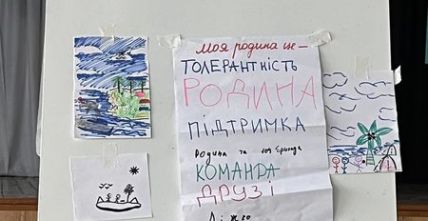 Моя родина це –
ТОЛЕРАНТНІСТЬ
РОДИНА
ПІДТРИМКА
Родина та моя
КОМАНДА
ДРУЗІ